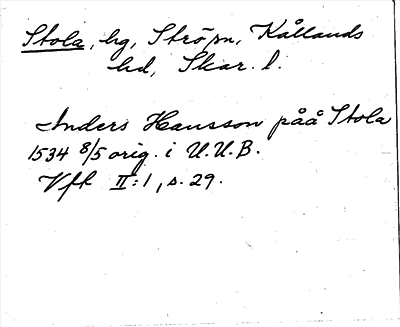 Stola, hg, Strö sn, Kållands
hd, Skar. l.
Anders Hansson påå Stola
1534 8/5 orig. i U.U.B.
Vfk II:1, s. 29.